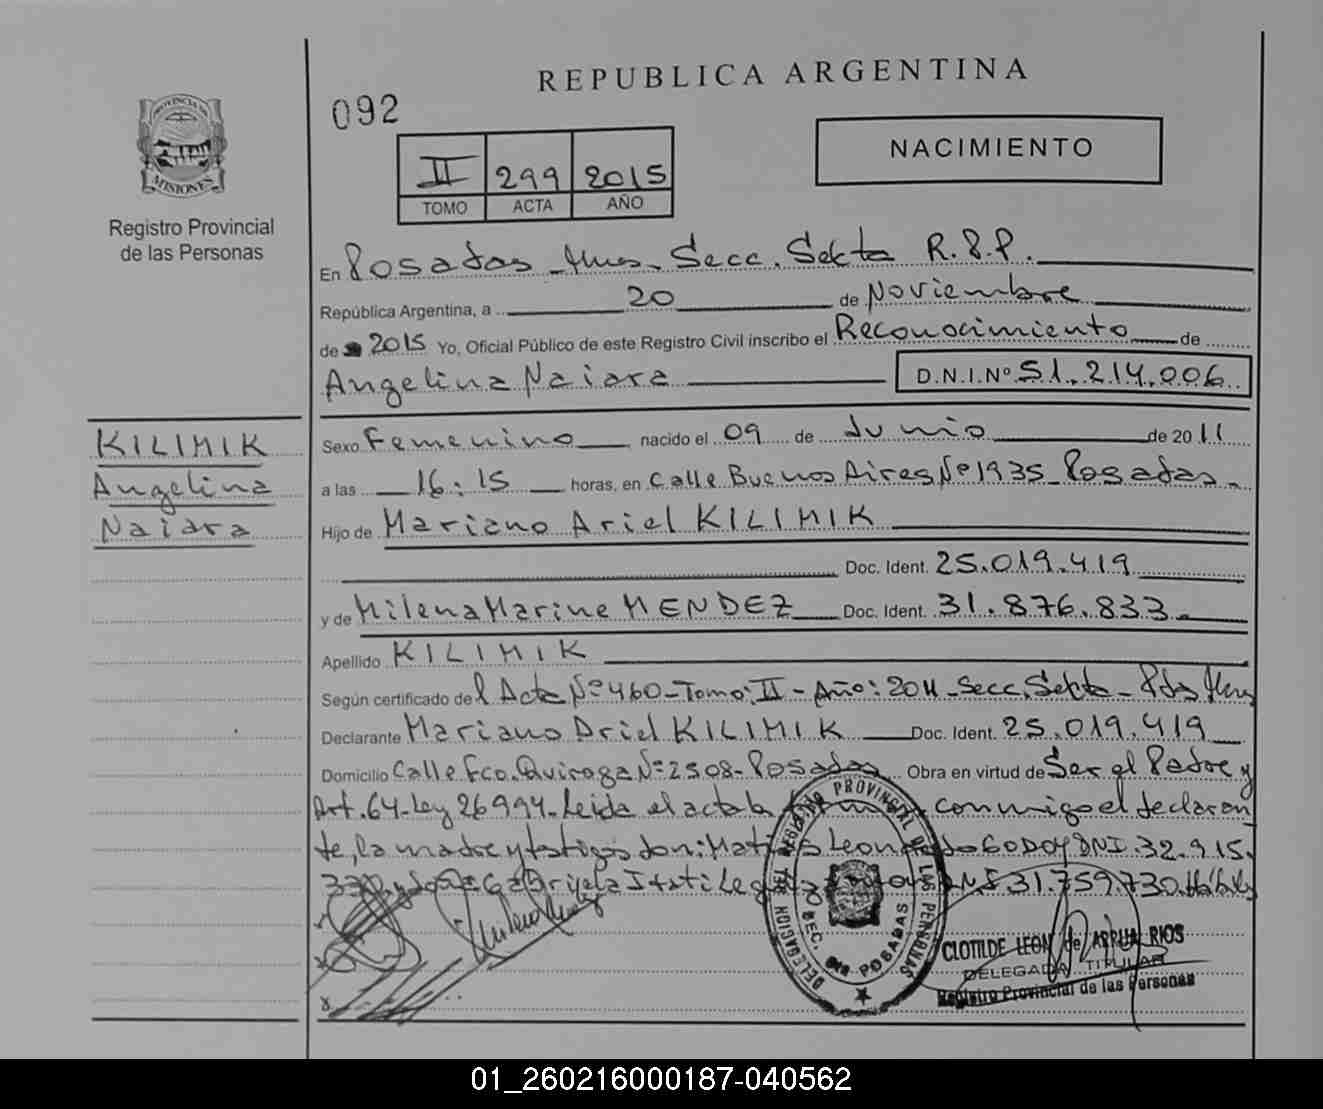 REPUBLICA ARGENTINA
092
PROVINCIA DE
MISIONES
Registro Provincial
de las Personas
NACIMIENTO
II 299 2015
TOMO ACTA AÑO
En Posadas Mnes. Secc. Sekta R.P.P.
República Argentina, a 20 de Noviembre
de 2015 Yo, Oficial Público de este Registro Civil inscribo el Reconocimiento de
Angelina Naiara D.N.I.Nº 51.214.006
KILIMIK
Angelina
Naiara
Sexo Femenino nacido el 09 de Junio de 2011
a las 16:15 horas, en Calle Buenos Aires Nº 1935 Posadas.
Hijo de Mariano Ariel KILIMIK
Doc. Ident. 25.019.419
y de Milena Marine MENDEZ Doc. Ident. 31.876.833.
Apellido KILIMIK
Según certificado del Acta Nº 460-Tomo: II - Año: 2011-Secc. Sekta - Pdas Mnes
Declarante Mariano Ariel KILIMIK Doc. Ident. 25.019.419
Domicilio Calle Fco. Quiroga Nº 2508-Posadas Obra en virtud de Ser el Padre y
Art. 64-Ley 26994-Leida el acta la conmigo el declaran
te, la madre y testigos don: Leon GODOY DNI. 32.915.
Gabriela Itati 31.759.730. Hábiles
DELEGACION DEL REGISTRO PROVINCIAL DE LAS PERSONAS
SEC. POSADAS
CLOTILDE LEON de ARRUA RIOS
DELEGADA TITULAR
Registro Provincial de las Personas
01_260216000187-040562